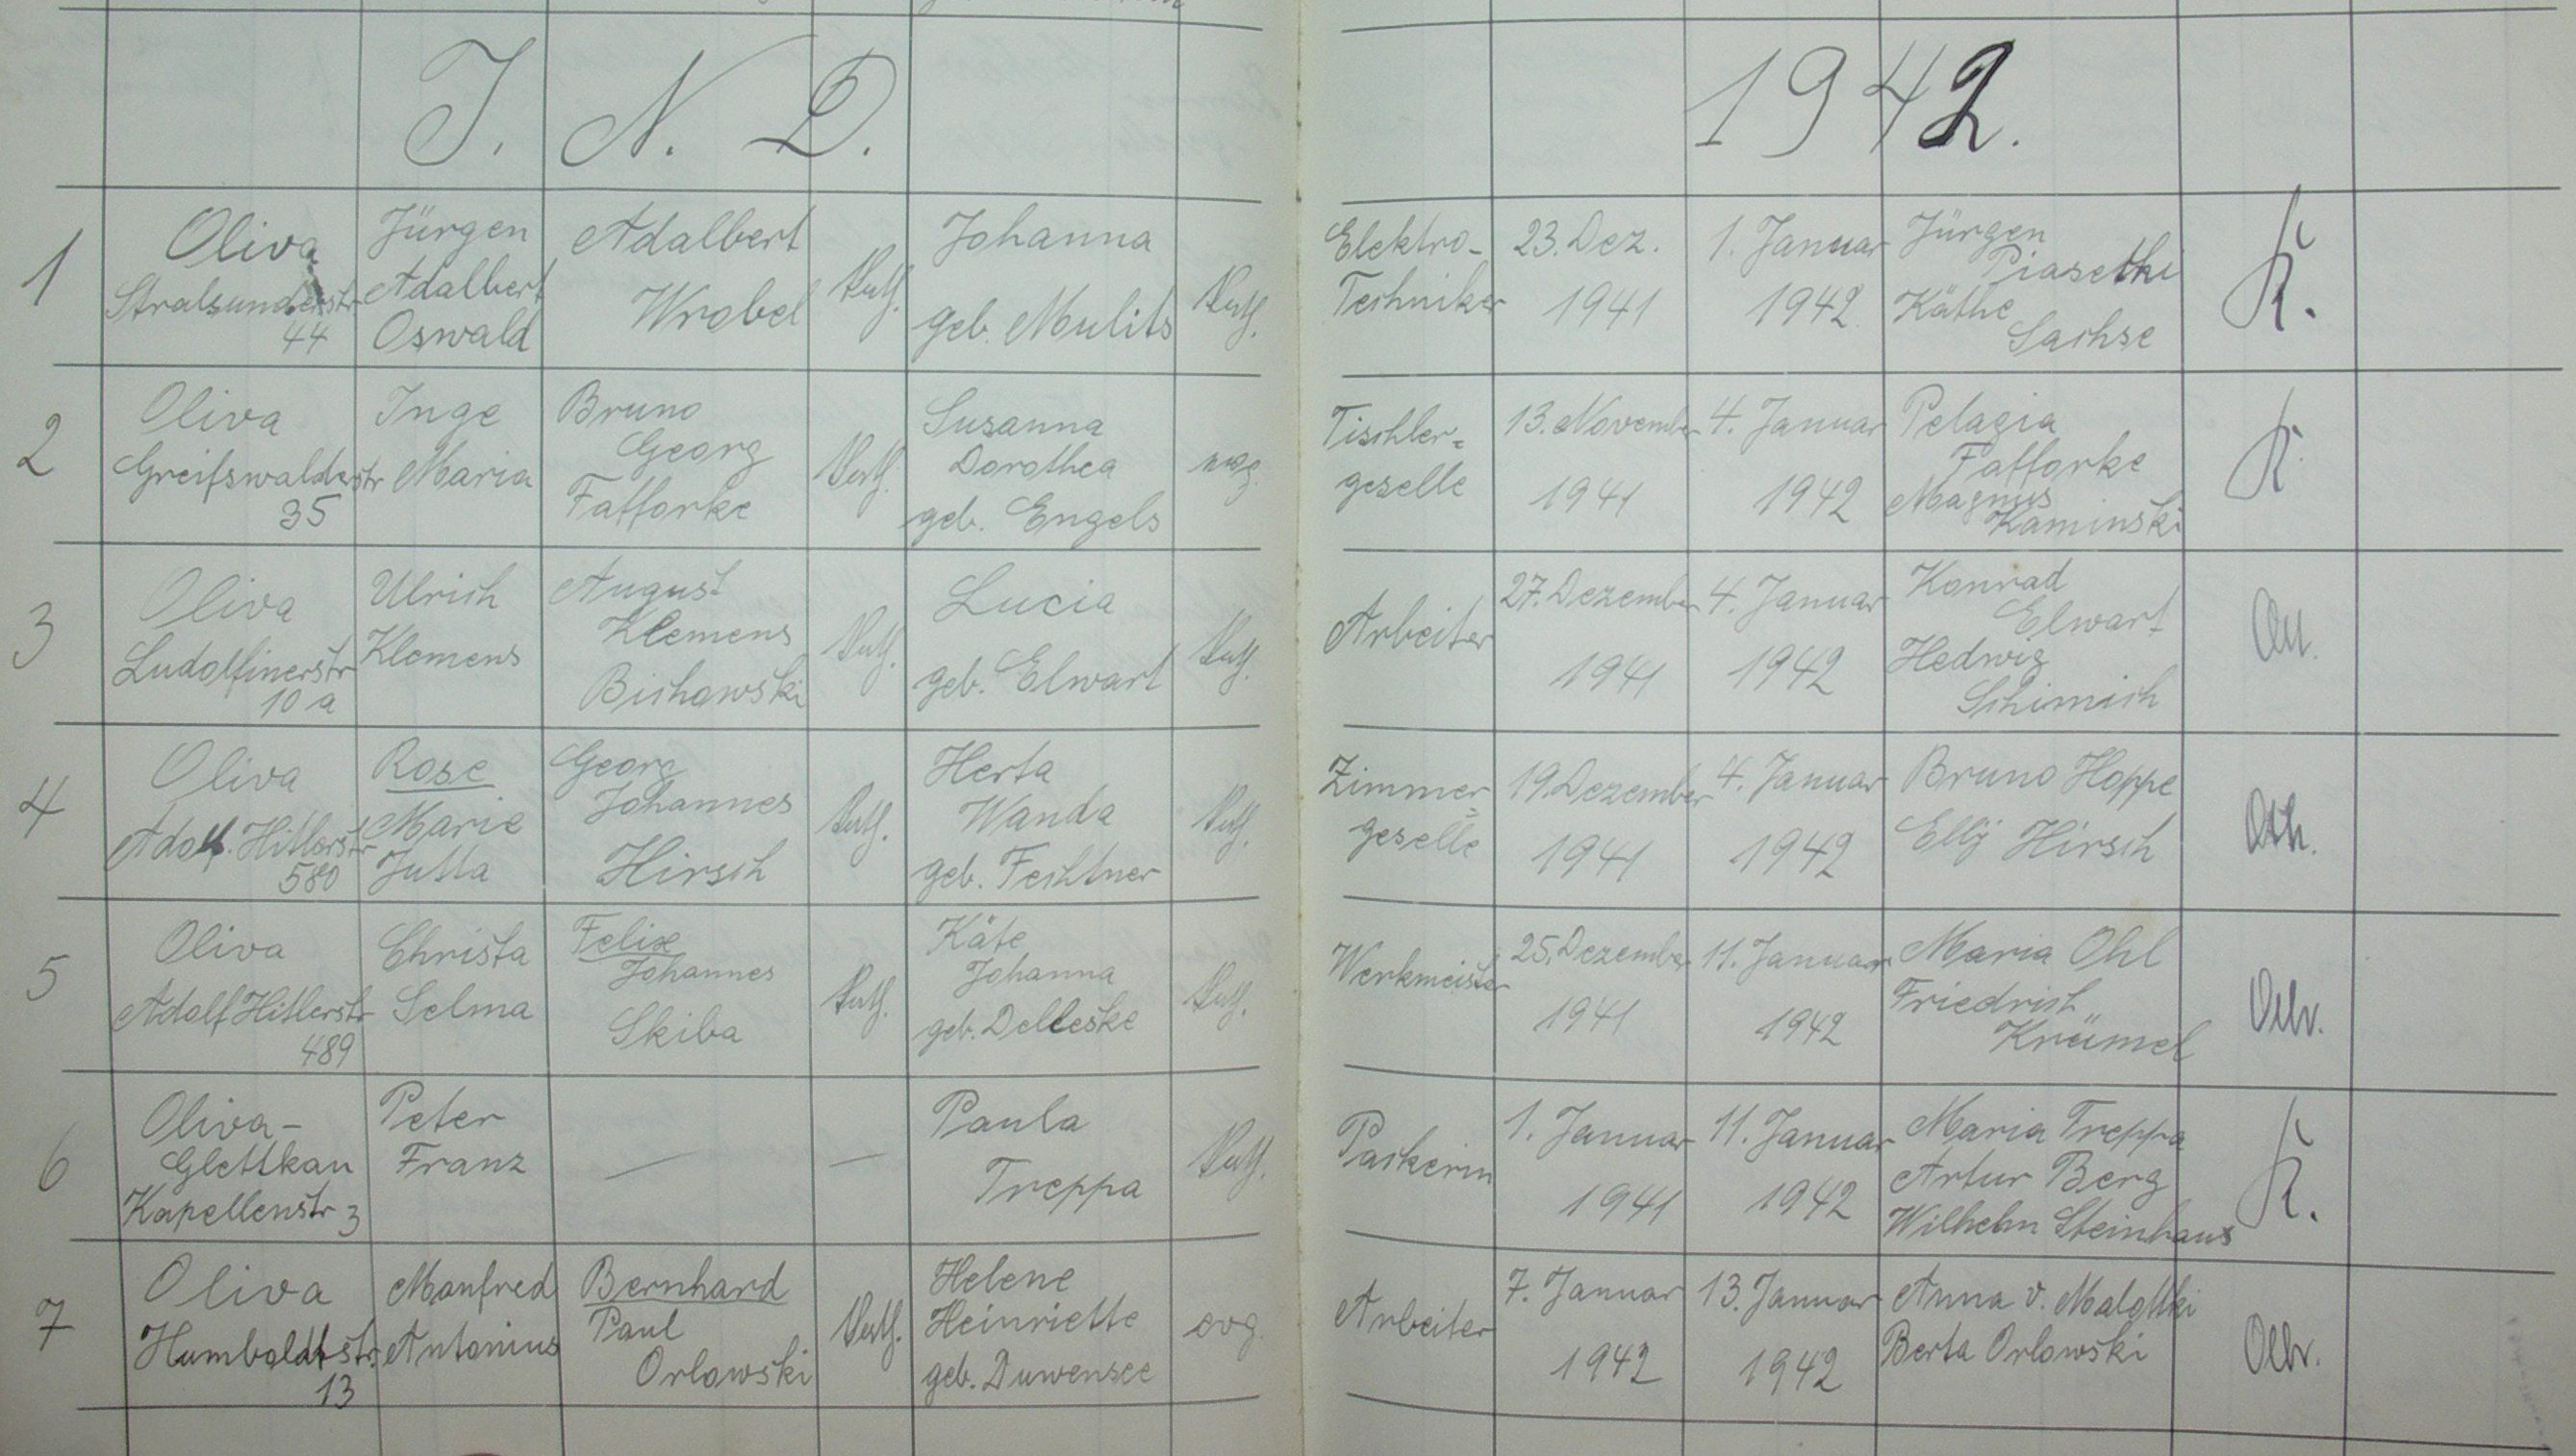 J. N. D. 1942.
1
Oliva
Stralsunderstr
44
Jürgen
Adalbert
Oswald
Adalbert
Wrobel
kath.
Johanna
geb. Mulits
kath.
Elektro-
Techniker
23. Dez.
1941
1. Januar
1942
Jürgen
Piasetki
Käthe
Sachse
K.
2
Oliva
Greifswalderstr
35
Inge
Maria
Bruno
Georg
Fafforke
kath.
Susanna
Dorothea
geb. Engels
evg.
Tischler-
geselle
13. November
1941
4. Januar
1942
Pelagia
Fafforke
Magnus
Kaminski
K.
3
Oliva
Ludolfinerstr
10 a
Ulrich
Klemens
August
Klemens
Bichowski
kath.
Lucia
geb. Elwart
kath.
Arbeiter
27. Dezember
1941
4. Januar
1942
Konrad
Elwart
Hedwig
Schimich
4
Oliva
Adolf Hitlerstr
580
Rose
Marie
Jutta
Georg
Johannes
Hirsch
kath.
Herta
Wanda
geb. Fechtner
kath.
Zimmer-
geselle
19. Dezember
1941
4. Januar
1942
Bruno Hoppe
Elly Hirsch
5
Oliva
Adolf Hitlerstr
489
Christa
Selma
Felix
Johannes
Skiba
kath.
Käte
Johanna
geb. Delleske
kath.
Werkmeister
25. Dezember
1941
11. Januar
1942
Maria Ohl
Friedrich
Krümel
6
Oliva-
Glettkau
Kapellenstr 3
Peter
Franz
—
—
Paula
Treppa
kath.
Packerin
1. Januar
1941
11. Januar
1942
Maria Treppa
Artur Berg
Wilhelm Steinhaus
K.
7
Oliva
Humboldtstr.
13
Manfred
Antonius
Bernhard
Paul
Orlowski
kath.
Helene
Heinriette
geb. Duwensee
evg.
Arbeiter
7. Januar
1942
13. Januar
1942
Anna v. Malottki
Berta Orlowski